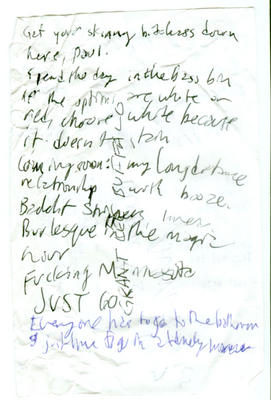 Get your skinny bitchass down
here, Paul.
Spend the day in the bass bin
If the options are white or
red, choose white because
it doesn't stain
Coming soon: my long distance
relationship with booze.
Badolit Strippers Inner
Burlesque the magic
hour
Fucking Minnesota
JUST GO.
GRANT LEE BUFFALO
Everyone has to go to the bathroom